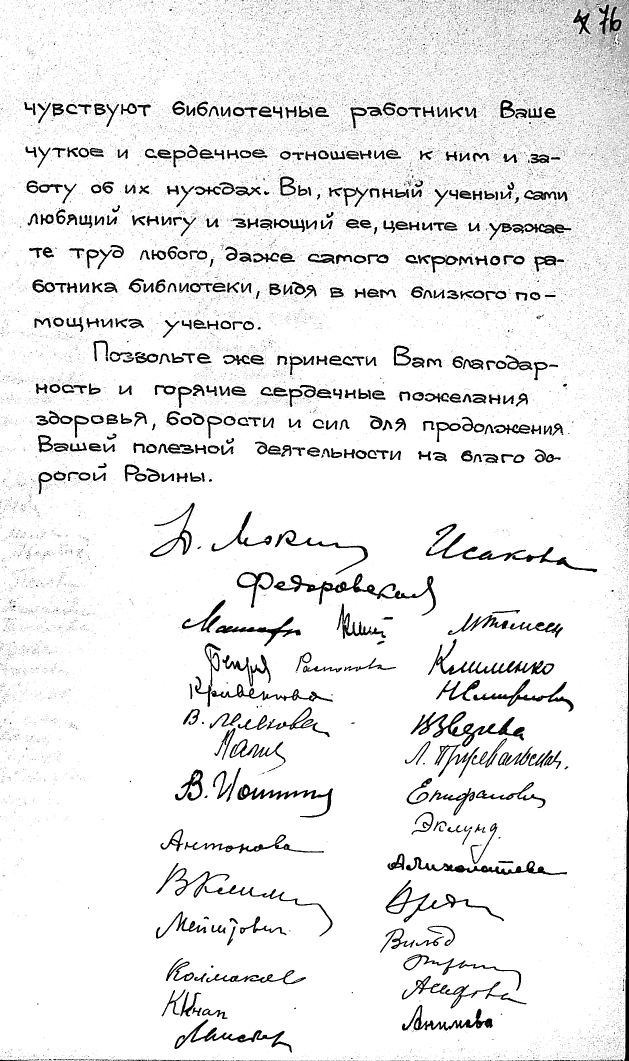 76
чувствуют библиотечные работники Ваше
чуткое и сердечное отношение к ним и за-
боту об их нуждах. Вы, крупный ученый, сами
любящий книгу и знающий ее, цените и уважае-
те труд любого, даже самого скромного ра-
ботника библиотеки, видя в нем близкого по-
мощника ученого.
Позвольте же принести Вам благодар-
ность и горячие сердечные пожелания
здоровья, бодрости и сил для продолжения
Вашей полезной деятельности на благо до-
рогой Родины.
Исакова
Федоровская
Клименко
Кривенкова
В. Лелекова
ВЗверева
Епифанович
Эклунд
Антонова
Мейштович
Вильд
Колмаков
Асафова
КНап
Анимова